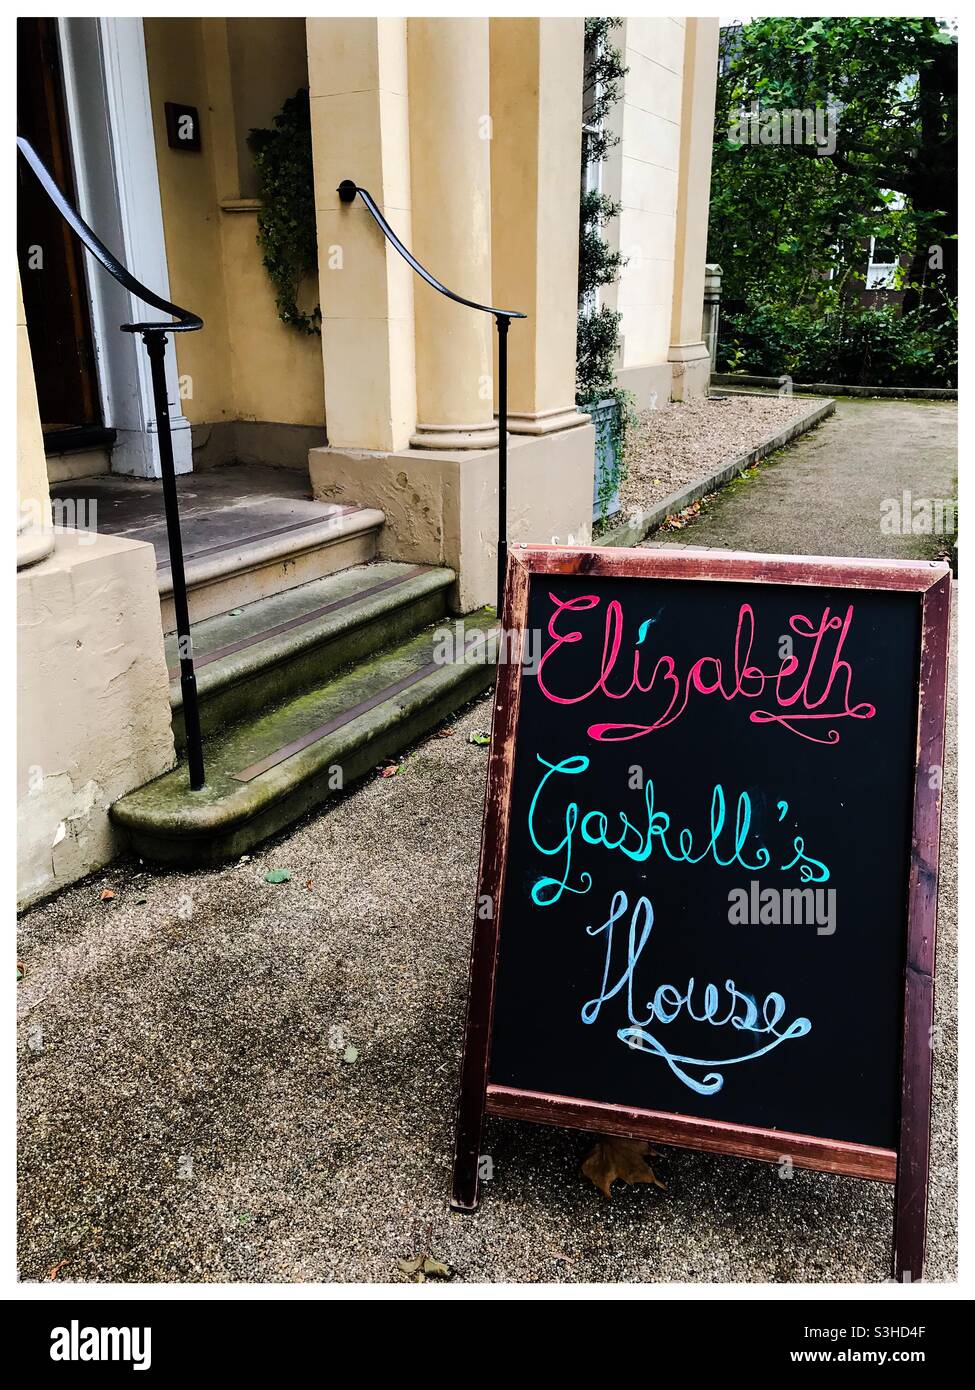 Elizabeth
Gaskell's
House
alamy
a
alamy
Image ID: S3HD4F
www.alamy.com